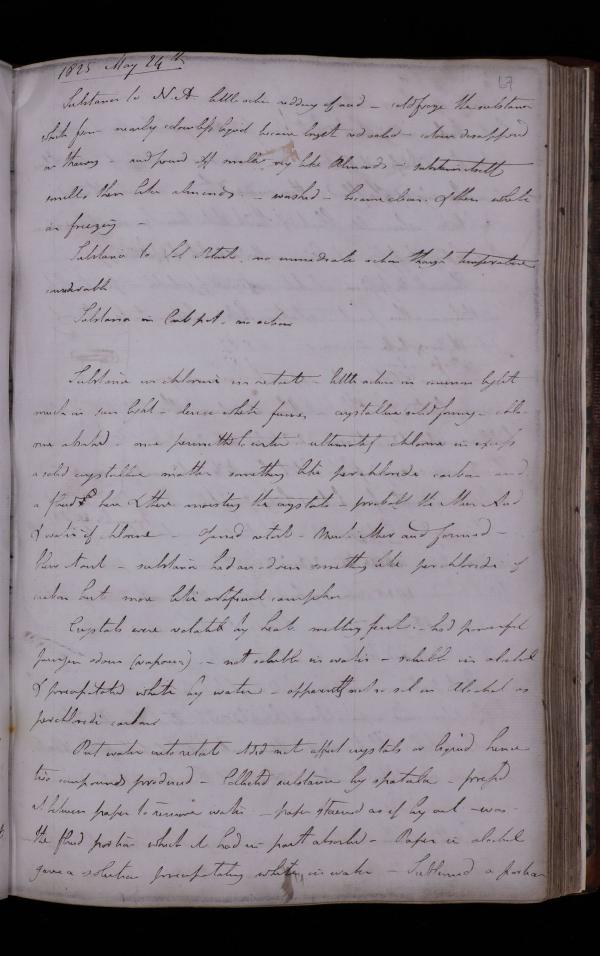 1825 May 24th
67
Substance to N A little action reddening of acid - cold froze the substance
which from nearly colourless liquid became bright red solid - colour disappeared
on thawing - and found it smelt very like Almonds - substance itself
smells then like almonds - washed - became clear & then white
on freezing -
Substance to Sol Potash no immediate action though temperature
considerable
Substance in Carb pot. no action
Substance in chlorine in retort - little action in common light
much in sun light - dense white fumes - crystalline solid forming - chlo-
rine absorbed - more permitted to enter ultimately chlorine in excess
a solid crystalline matter something like perchloride carbon and
a fluid here & there moistening the crystals - probably the Mur Acid
& water of chlorine - Opened retort - Much Mur acid formed -
blew it out - substance had an odour something like perchloride of
carbon but more like artificial camphor
Crystals were volatile by heat melting first - had powerful
odour (vapours) - not soluble in water - soluble in alcohol
& precipitated white by water - apparently not so sol in Alcohol as
perchloride carbon
Put water into retort - did not affect crystals or liquid hence
two compounds produced - Collected substance by spatula - pressed
it between paper to remove water - paper stained as if by oil - was
the fluid portion which it had in part absorbed - Paper in alcohol
gave a solution precipitating white in water - Sublimed a portion